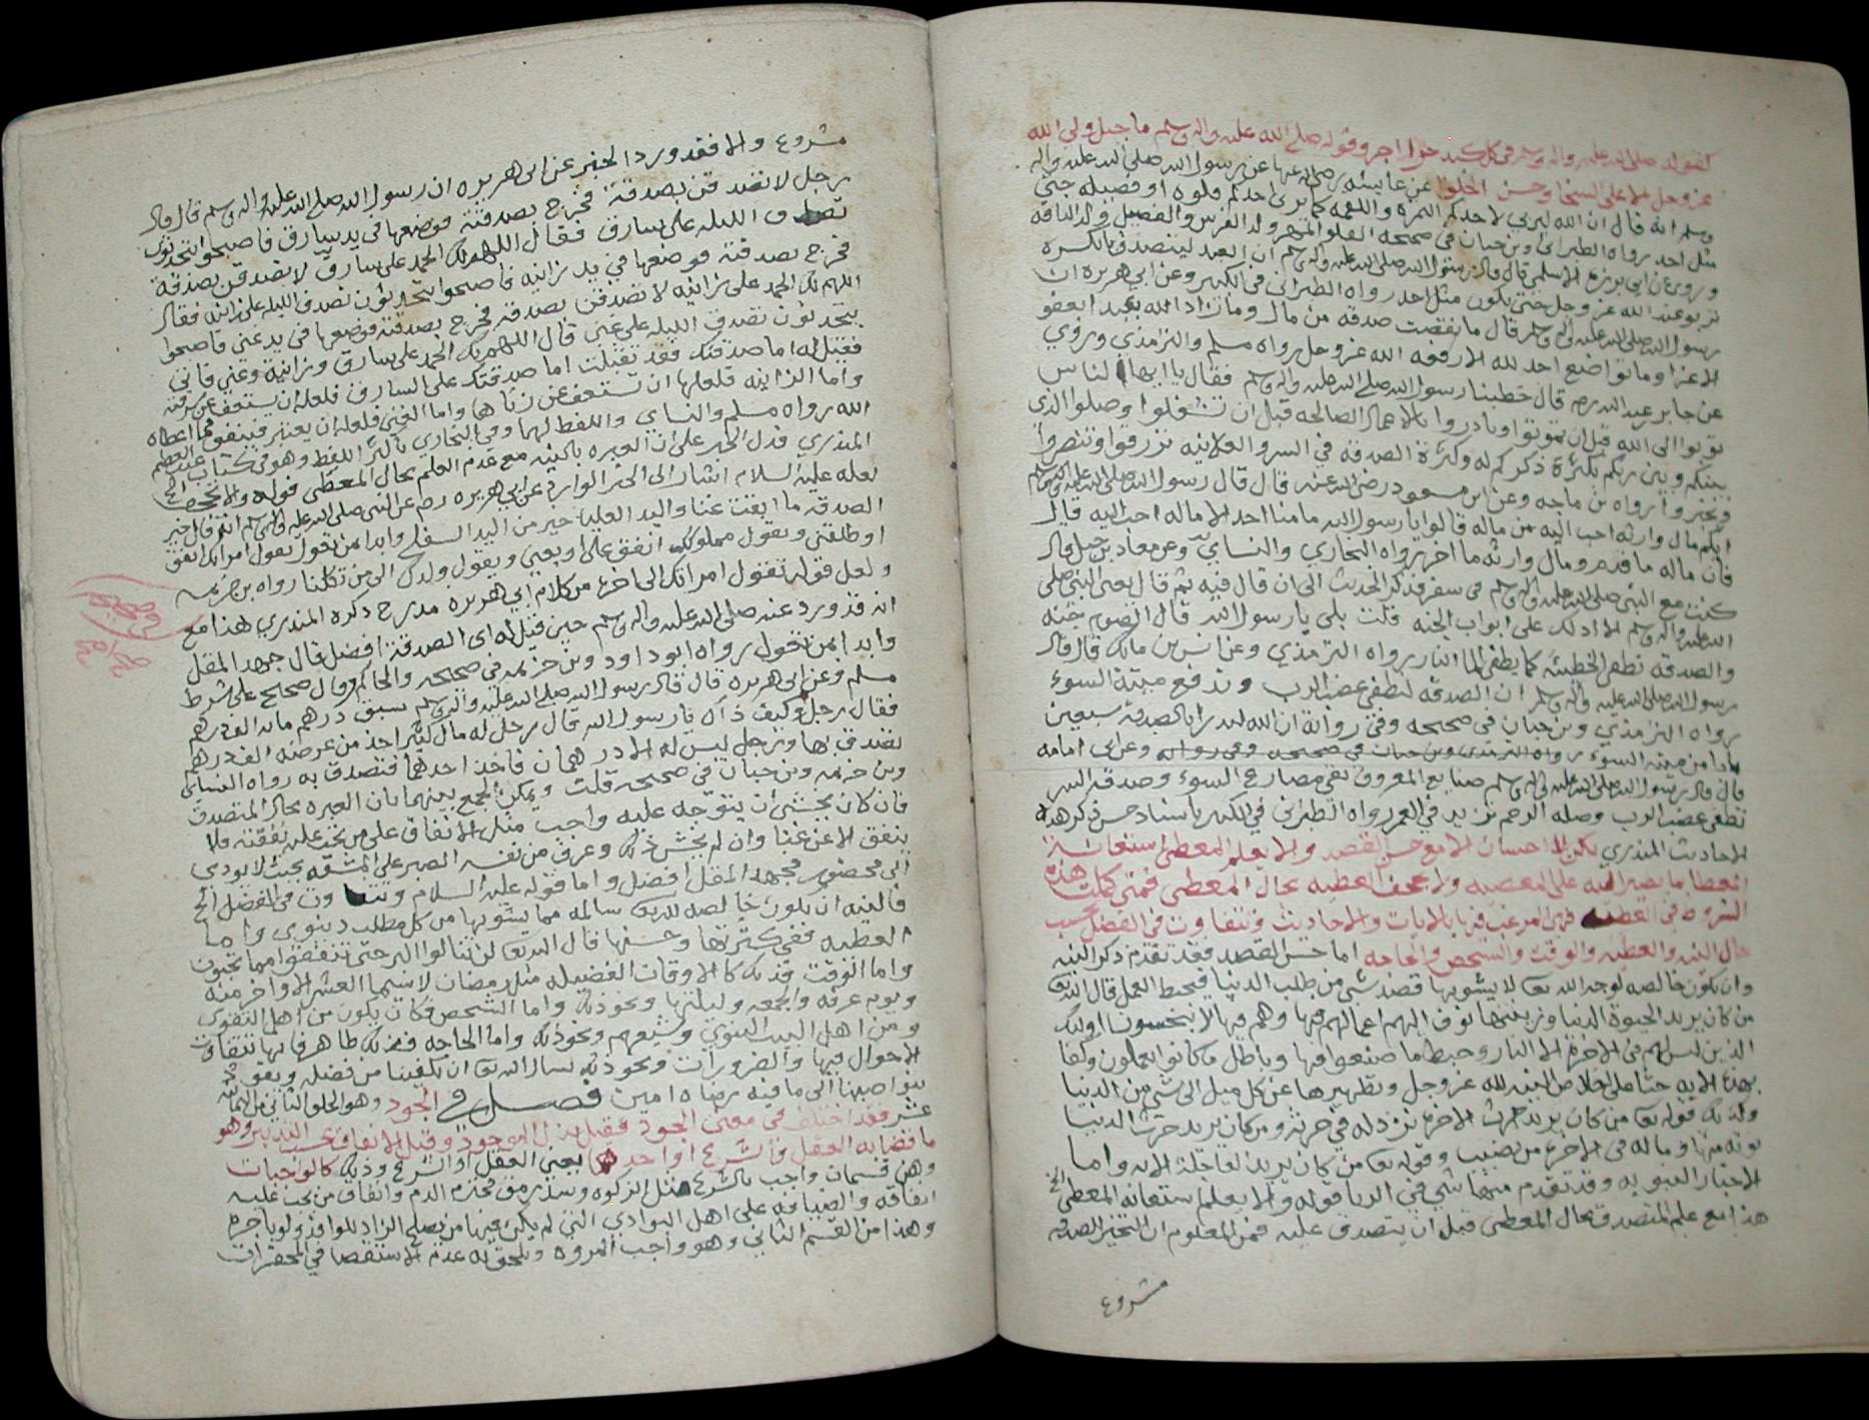 كقوله صلى الله عليه واله وسلم في كل كبد حرا اجر وقوله صلى الله عليه واله وسلم ما جبل ولي الله
عز وجل الا على السخا وحسن الخلق عن عايشه رضي الله عنها عن رسول الله صلى الله عليه واله
وسلم انه قال ان الله ليربي لاحدكم التمره واللقمه كما يربي احدكم فلوه او فصيله حتى
مثل احد رواه الطبراني وبن حبان في صحيحه الفلو المهر ولد الفرس والفصيل ولد الناقه
وروي عن ابي برزه الاسلمي قال قال رسول الله صلى الله عليه واله وسلم ان العبد ليتصدق بالكسره
تربو عند الله عز وجل حتى يكون مثل احد رواه الطبراني في الكبير وعن ابي هريره ان
رسول الله صلى الله عليه واله وسلم قال ما نقصت صدقه من مال وما زاد الله عبدا بعفو
الا عزا وما تواضع احد لله الا رفعه الله عز وجل رواه مسلم والترمذي وروي
عن جابر عبد الله رضه قال خطبنا رسول الله صلى الله عليه واله وسلم فقال يا ايها الناس
توبوا الى الله قبل ان تموتوا وبادروا بالاعمال الصالحه قبل ان تشغلوا وصلوا الذي
بينكم وبين ربكم بكثرة ذكركم له وكثرة الصدقه في السر والعلانيه ترزقوا وتنصروا
وتجبروا رواه بن ماجه وعن ابن مسعود رضي الله عنه قال قال رسول الله صلى الله عليه واله وسلم
ايكم مال وارثه احب اليه من ماله قالوا يا رسول الله ما منا احد الا ماله احب اليه قال
فان ماله ما قدم ومال وارثه ما اخر رواه البخاري والنساي وعن معاذ بن جبل قال
كنت مع النبي صلى الله عليه واله وسلم في سفر فذكر الحديث الى ان قال فيه ثم قال يعني النبي صلى
الله عليه واله وسلم الا ادلك على ابواب الجنه قلت بلى يا رسول الله قال الصوم جنه
والصدقه تطفي الخطيئه كما يطفي الما النار رواه الترمذي وعن انس بن مالك قال قال
رسول الله صلى الله عليه واله وسلم ان الصدقه لتطفي غضب الرب وتدفع ميتة السوء
رواه الترمذي وبن حبان في صحيحه وفي رواية ان الله ليدرا بالصدقه سبعين
بابا من ميته السوء رواه الترمذي وبن حبان في صحيحه وفي رواية وعن ابي امامه
قال قال رسول الله صلى الله عليه واله وسلم صنايع المعروف تقي مصارع السوء وصدقه السر
تطفي غضب الرب وصله الرحم تزيد في العمر رواه الطبراني في الكبير باسناد حسن ذكر هذه
الاحاديث المنذري لكن لا احسان الا مع حسن القصد والا يعلم المعطي استعانة
المعطا بما يصير اليه على المعصيه ولا يجحف العطيه بحال المعطي فمتى كملت هذه
الشروط في العطيه فهي المرغب فيها بالايات والاحاديث وتتفاوت في الفضل بحسب
حال النيه والعطيه والوقت والشخص والحاجه اما حسن القصد فقد تقدم ذكر النيه
وان يكون خالصه لوجه الله تعا لا يشوبها قصد شي من طلب الدنيا فيحبط العمل قال الله تعا
من كان يريد الحيوة الدنيا وزينتها نوف اليهم اعمالهم فيها وهم فيها لا يبخسون اوليك
الذين ليس لهم في الاخرة الا النار وحبط ما صنعوا فيها وباطل ما كانوا يعملون وكفا
بهذه الايه حثا على اخلاص النيه لله عز وجل وتطهيرها عن كل ميل الى شي من الدنيا
وكذلك قوله تعا من كان يريد حرث الاخرة نزد له في حرثه ومن كان يريد حرث الدنيا
نوته منها وما له في الاخرة من نصيب وقوله تعا من كان يريد العاجلة الايه واما
الاخبار النبويه وقد تقدم منها شي في الريا قوله والا يعلم استعانه المعطى الخ
هذا مع علم المتصدق بحال المعطى قبل ان يتصدق عليه فمن المعلوم ان التحير للصدقه
مشروع
مشروع والا فقد ورد الخبر عن ابي هريره ان رسول الله صلى الله عليه واله وسلم قال قال
رجل لاتصدقن بصدقة فخرج بصدقته فوضعها في يد سارق فاصبحوا يتحدثون
تصدق الليله على سارق فقال اللهم لك الحمد على سارق لاتصدقن بصدقة
فخرج بصدقته فوضعها في يد زانيه فاصبحوا يتحدثون تصدق الليله على زانيه فقال
اللهم لك الحمد على زانيه لاتصدقن بصدقه فخرج بصدقته فوضعها في يد غني فاصبحوا
يتحدثون تصدق الليله على غني قال اللهم لك الحمد على سارق وزانية وغني فاتي
فقيل له اما صدقتك فقد تقبلت اما صدقتك على السارق فلعله ان يستعف عن سرقته
واما الزانيه فلعلها ان تستعف عن زناها واما الغني فلعله ان يعتبر فينفق مما اعطاه
الله رواه مسلم والنساي واللفظ لهما وفي البخاري باكثر اللفظ وهو في كتاب عبد العظيم
المنذري فدل الخبر على ان العبره بالنيه مع عدم العلم بحال المعطى قوله والا تجحف الخ
لعله عليه السلام اشار الى الخبر الوارد عن ابي هريره رضه عن النبي صلى الله عليه واله وسلم انه قال خير
الصدقه ما ابقت غنا واليد العليا خير من اليد السفلى وابدا بمن تعول تقول امراتك انفق
او طلقني ويقول مملوكك انفق علي او بعني ويقول ولدك الى من تكلنا رواه بن خزيمه
ولعل قوله تقول امراتك الى اخره من كلام ابي هريره مدرج ذكره المنذري هذا مع
انه قد ورد عنه صلى الله عليه واله وسلم حين قيل له اى الصدقة افضل قال جهد المقل
وابدا بمن تعول رواه ابو داود وبن خزيمه في صحيحه والحاكم وقال صحيح على شرط
مسلم وعن ابي هريره قال قال رسول الله صلى الله عليه واله وسلم سبق درهم مائه الف درهم
فقال رجل وكيف ذاك يا رسول الله قال رجل له مال كثير اخذ من عرضه الف درهم
تصدق بها ورجل ليس له الا درهمان فاخذ احدهما فتصدق به رواه النساي
وبن خزيمه وبن حبان في صحيحه قلت ويمكن الجمع بينهما بان العبره بحال المتصدق
فان كان يخشى ان يتوجه عليه واجب مثل الانفاق على من تجب عليه نفقته فلا
ينفق الا عن غنا وان لم يخش ذلك وعرف من نفسه الصبر على المشقه بحيث لا يودي
الى محضور فجهد المقل افضل واما قوله عليه السلام وتتفاوت في الفضل الخ
فالنيه ان تكون خالصه لله تعا سالمه مما يشوبها من كل مطلب دنيوي واما
العطيه ففي كثرتها وحسنها قال الله تعا لن تنالوا البر حتى تنفقوا مما تحبون
واما الوقت فذلك كالاوقات الفضيله مثل رمضان لا سيما العشر الاواخر منه
ويوم عرفه والجمعه وليلتها ونحو ذلك واما الشخص فكان يكون من اهل التقوى
ومن اهل البيت النبوي وشيعهم ونحو ذلك واما الحاجه فذلك ظاهر فانها تتفاوت
الاحوال فيها والضرورات ونحو ذلك نسال الله تعا ان يكفينا من فضله ويقود
بنواصينا الى ما فيه رضاه امين فصل في الجود وهو الخلق الثاني من الثمانيه
عشر فقد اختلف في معنى الجود فقيل بذل الموجود وقيل الانفاق بحسب التدبير وهو
ما قضا به العقل والشرع او احدهما يعني العقل او الشرع وذلك كالواجبات
وهي قسمان واجب بالشرع مثل الزكوه وسد رمق محترم الدم وانفاق من تجب عليه
انفاقه والضيافه على اهل البوادي التي لم يكن فيها من يصلح الزاد للوافد ولو باجره
وهذا من القسم الثاني وهو واجب المروه ويلحق به عدم الاستقصا في المحقرات